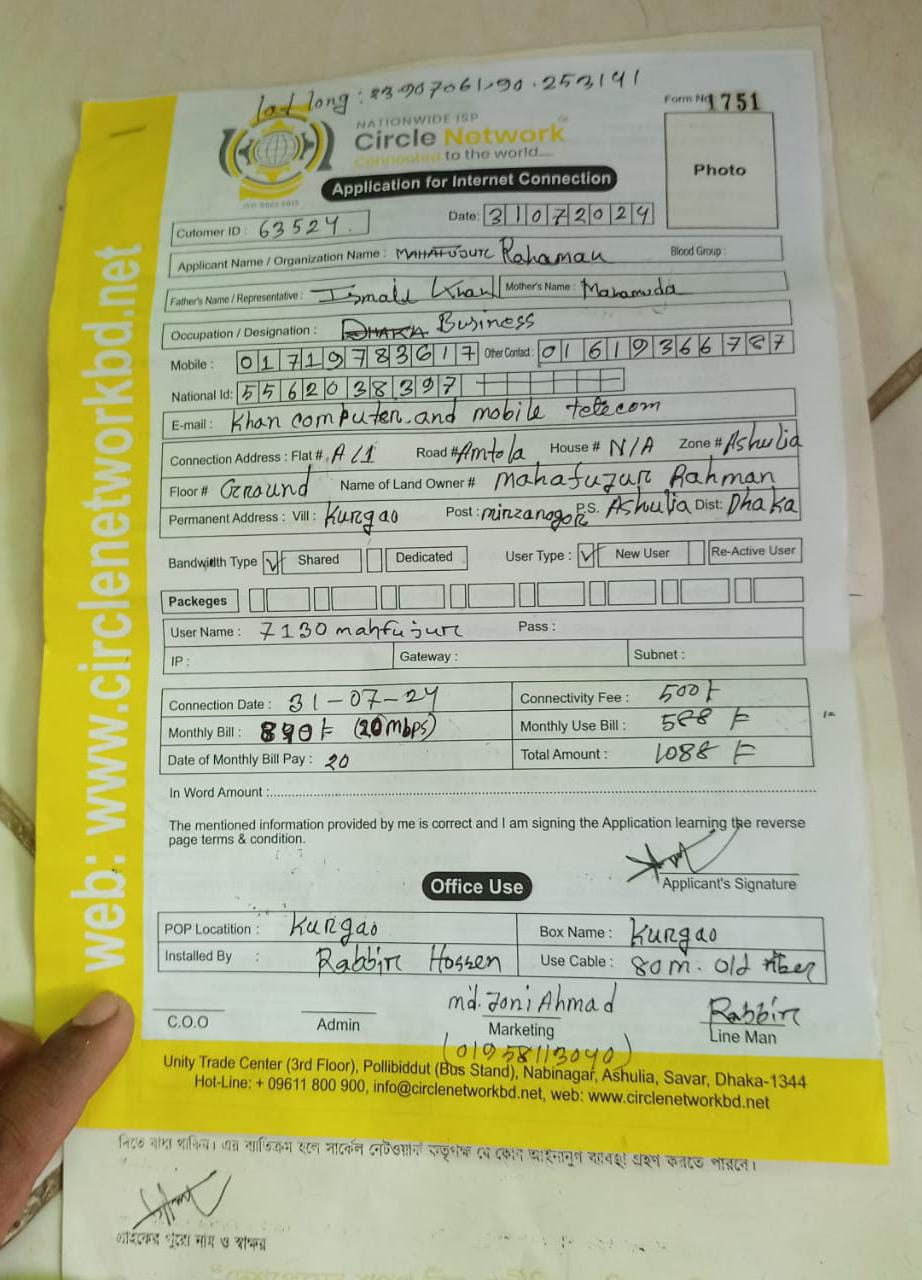 lat long : 23.907061,90.253141
Form No 1751
NATIONWIDE ISP
Circle Network
Connected to the world....
ISO 9001:2015
Application for Internet Connection
Photo
Cutomer ID : 63524 Date: 31072024
Applicant Name / Organization Name : MAHAFUJUR Rahaman Blood Group :
Father's Name / Representative : Ismail Khan Mother's Name : Mahamuda
Occupation / Designation : DHAKA Business
Mobile : 01719783617 Other Contact : 01619366787
National Id: 5562038397
E-mail : Khan computer and mobile telecom
Connection Address : Flat # A/1 Road # Amtola House # N/A Zone # Ashulia
Floor # Ground Name of Land Owner # Mahafujur Rahman
Permanent Address : Vill : Kurgao Post : mirzanagor P.S. Ashulia Dist: Dhaka
Bandwidth Type Shared Dedicated User Type : New User Re-Active User
Packeges
User Name : 7130 mahfujur Pass :
IP : Gateway : Subnet :
Connection Date : 31-07-24 Connectivity Fee : 500 F
Monthly Bill : 890 F (20mbps) Monthly Use Bill : 588 F
Date of Monthly Bill Pay : 20 Total Amount : 1088 F
In Word Amount :
The mentioned information provided by me is correct and I am signing the Application learning the reverse
page terms & condition.
Applicant's Signature
Office Use
POP Locatition : Kurgao Box Name : Kurgao
Installed By : Rabbir Hossen Use Cable : 80 m. old fiber
md. Joni Ahmad Rabbir
C.O.O Admin Marketing Line Man
(01958113040)
Unity Trade Center (3rd Floor), Pollibiddut (Bus Stand), Nabinagar, Ashulia, Savar, Dhaka-1344
Hot-Line: + 09611 800 900, info@circlenetworkbd.net, web: www.circlenetworkbd.net
web: www.circlenetworkbd.net
দিতে বাধ্য থাকিব। এর ব্যতিক্রম হলে সার্কেল নেটওয়ার্ক কর্তৃপক্ষ যে কোন আইনানুগ ব্যবস্থা গ্রহণ করতে পারবে।
গ্রাহকের পুরো নাম ও স্বাক্ষর